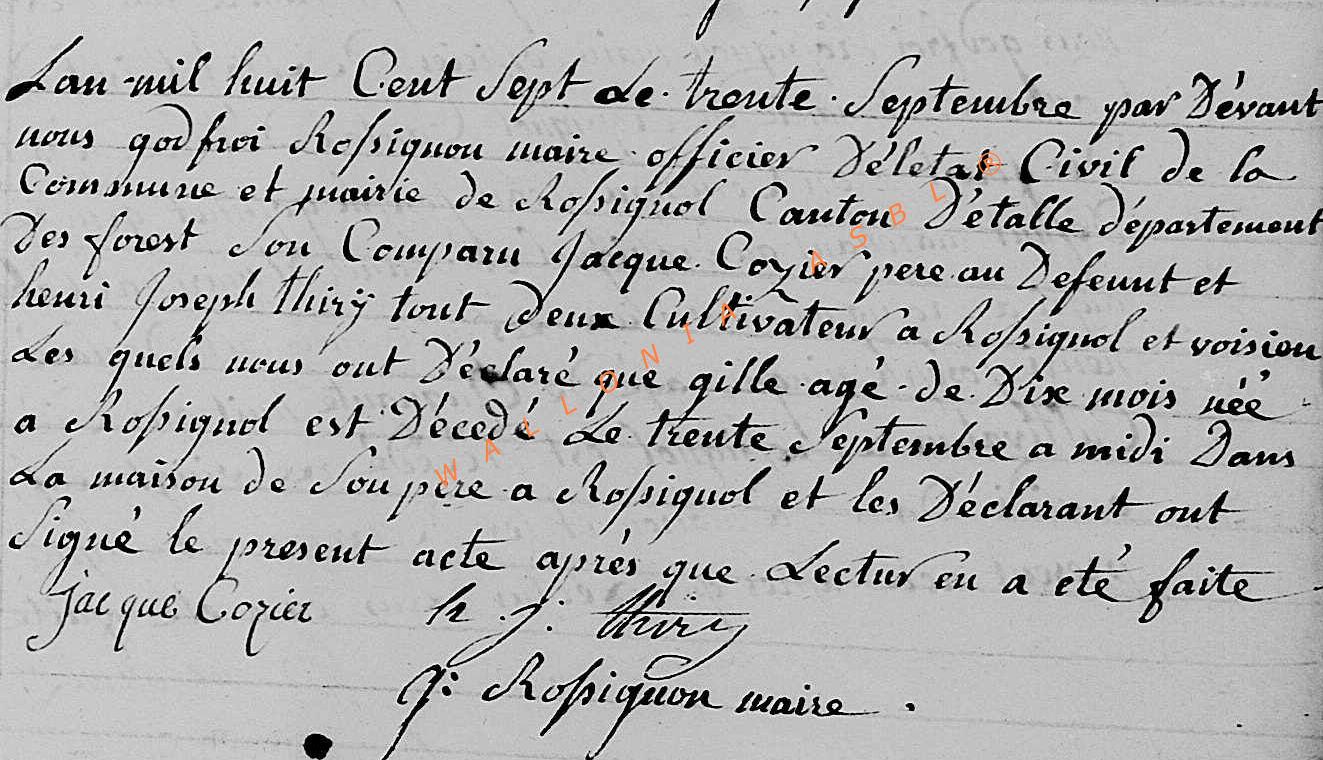 Lan mil huit Cent Sept Le trente Septembre par Dévant
nous godfroi Rossignon maire officier Déletat Civil de la
Commune et mairie de Rossignol Canton D'étalle département
Des forest Son Comparu Jacque Cozier pere au Defeunt et
henri Joseph thirÿ tout Deux Cultivateur a Rossignol et voisien
Les quels nous ont Déclaré que gille agé de Dix mois néé
a Rossignol est Décedé Le trente Septembre a midi Dans
La maison de Son pere a Rossignol et les Déclarant ont
Signé le present acte aprés que Lectur en a eté faite
Jacque Cozier h. j. thiry
g: Rossignon maire .
WALLONIA ASBL ®